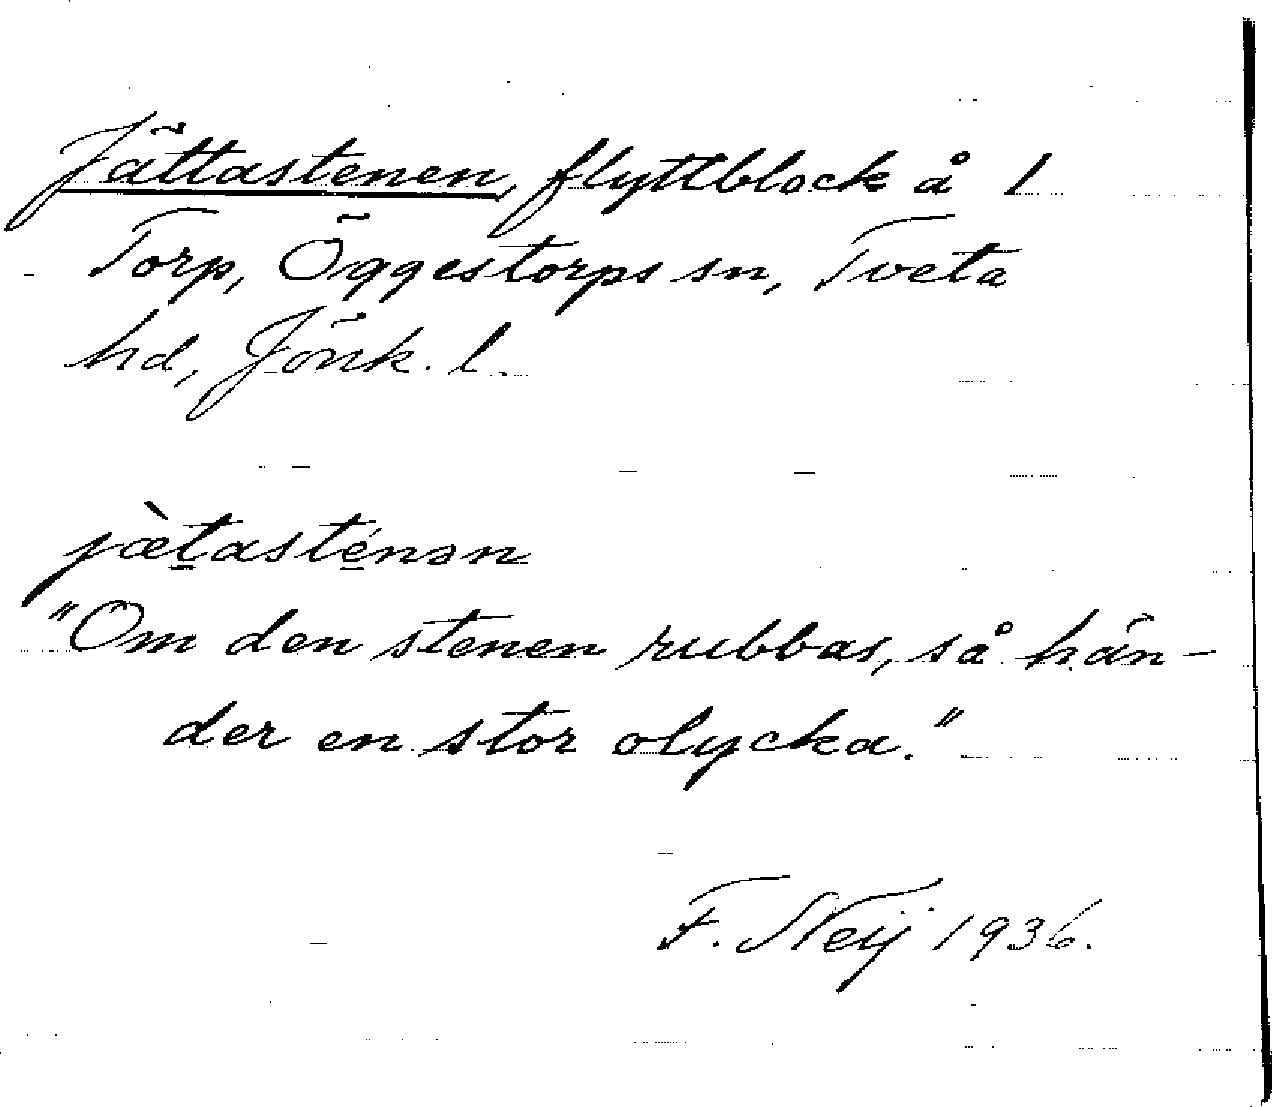 Jättastenen, flyttblock å 1
Torp, Öggestorps sn, Tveta
hd, Jönk. l.
jæ̀t̲asté̲nən
"Om den stenen rubbas, så hän-
der en stor olycka."
F. Neij 1936.